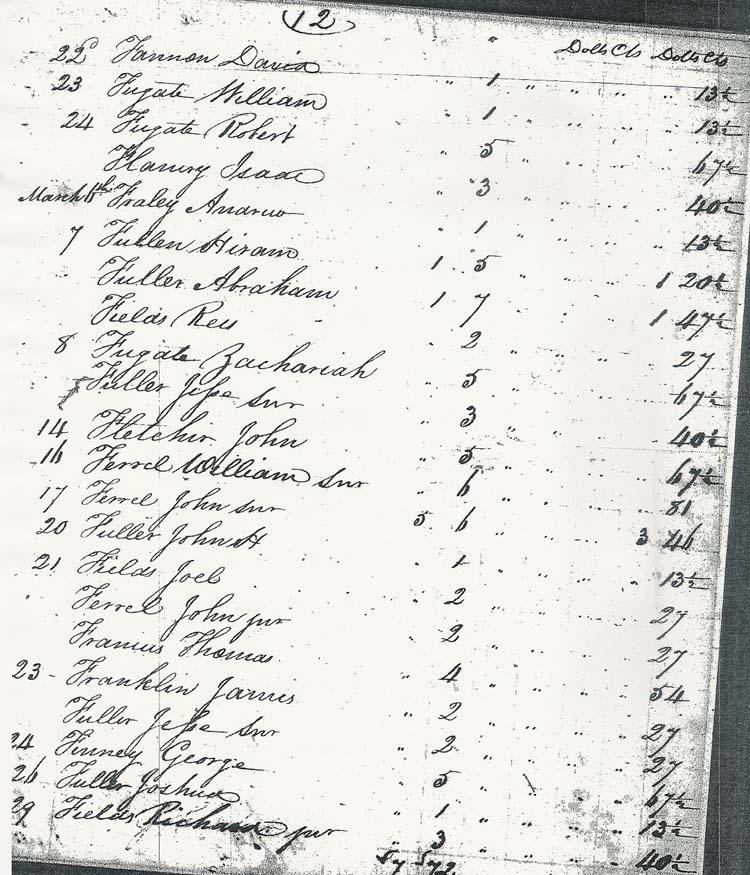 12
Dolls Cts Dolls Cts
22 Fannon David " 1 " " " " 13½
23 Fugate William " 1 " " " " 13½
24 Fugate Robert " 5 " " " " 67½
Flanery Isaac " 3 " " " " 40½
March 6th Fraley Andrew " 1 " " " " 13½
7 Fullen Hiram 1 5 " " " 1 20½
Fuller Abraham 1 7 " " " 1 47½
Fields Rees " 2 " " " " 27
8 Fugate Zachariah " 5 " " " " 67½
Fuller Jesse Snr " 3 " " " " 40½
14 Fletcher John " 5 " " " " 67½
16 Ferrel William Snr " 6 " " " " 81
17 Ferrel John snr 5 6 " " " 3 46
20 Fuller John H " 1 " " " " 13½
21 Fields Joel " 2 " " " " 27
Ferrel John jur " 2 " " " " 27
Francis Thomas " 4 " " " " 54
23 Franklin James " 2 " " " " 27
Fuller Jesse Snr " 2 " " " " 27
24 Finney George " 5 " " " " 67½
26 Fuller Joshua " 1 " " " " 13½
29 Fields Richard jur " 3 " " " " 40½